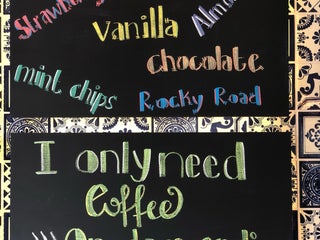 Strawberry
vanilla
chocolate
mint chips
Rocky Road
I only need
Coffee